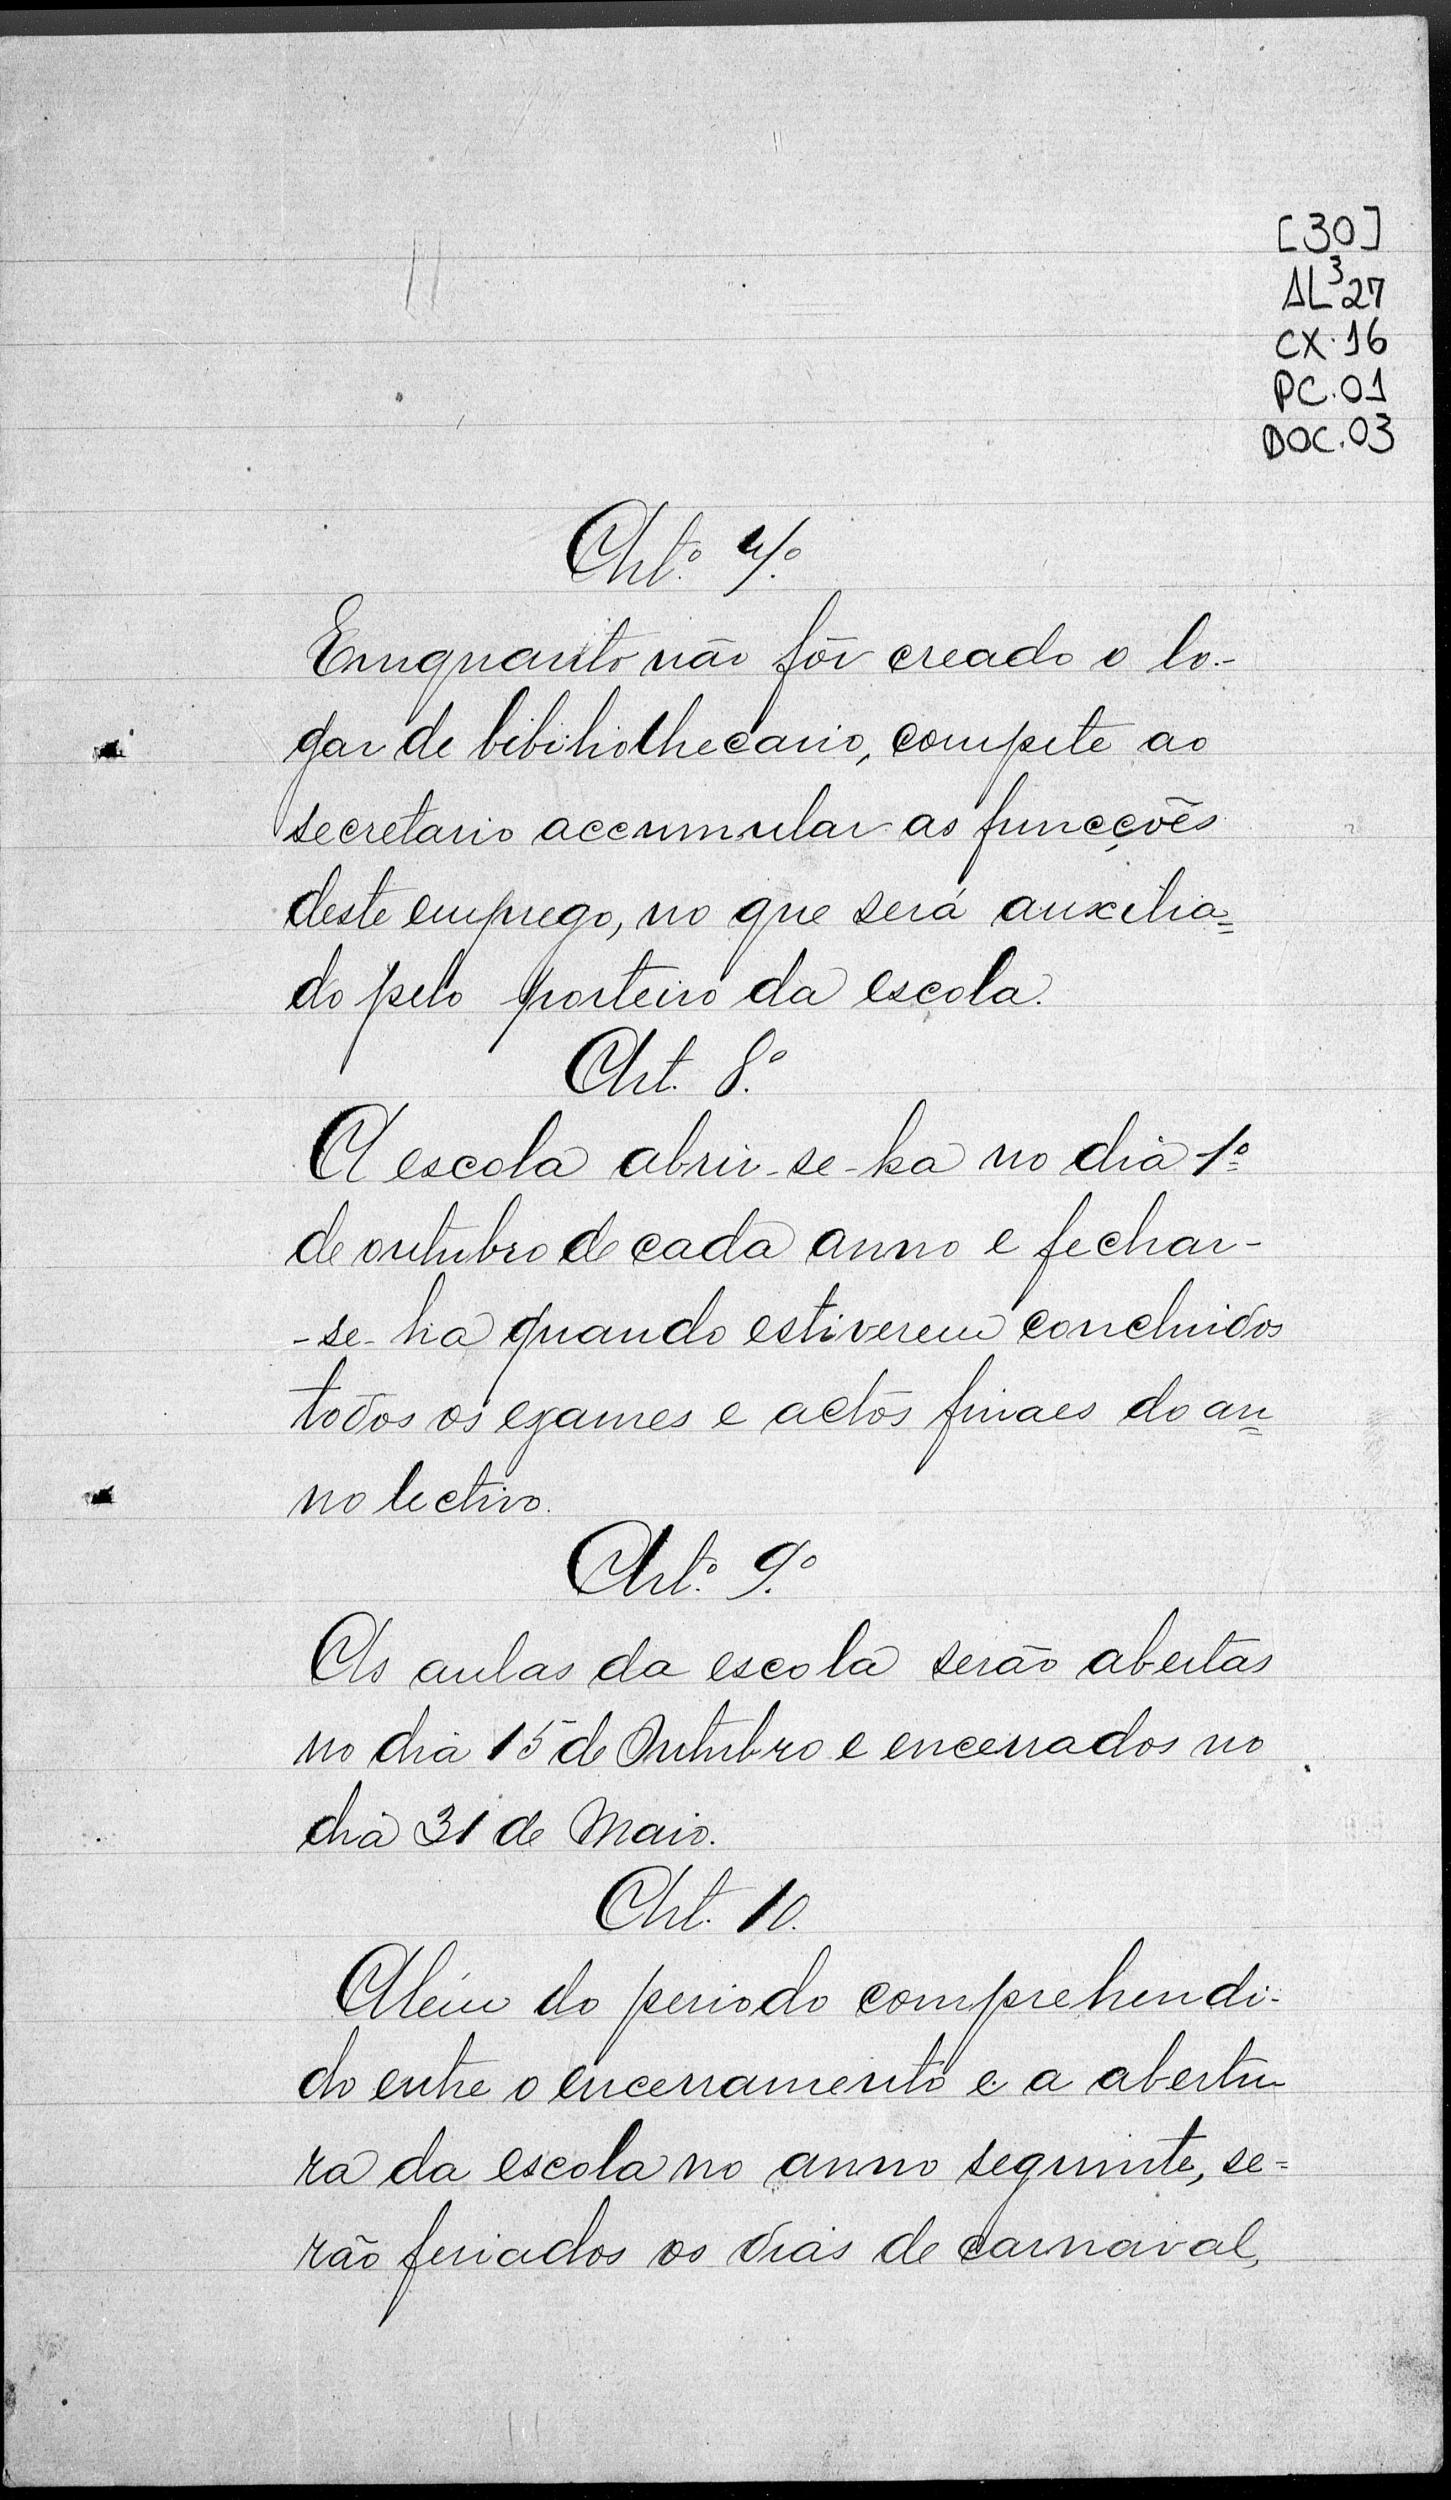 [30]
AL³27
CX.16
PC.01
DOC.03
Art.º 7.º
Emquanto não fôr creado o lo-
gar de bibiliothecario, compete ao
secretario accumular as funcções
deste emprego, no que será auxilia=
do pelo porteiro da escola.
Art. 8.º
A escola abrir-se-ha no dia 1º
de outubro de cada anno e fechar-
-se-ha quando estiverem concluidos
todos os exames e actos finaes do an=
no lectivo.
Art.º 9.º
As aulas da escola serão abertas
no dia 15 de Outubro e encerrados no
dia 31 de Maio.
Art. 10.
Além do periodo comprehendi-
do entre o encerramento e a abertu
ra da escola no anno seguinte, se=
rão feriados os dias de carnaval,